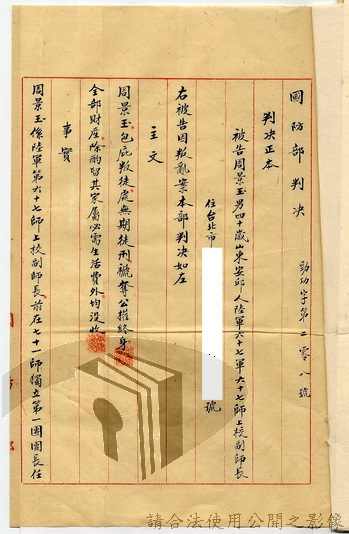 國防部判決 勁功字第二零八號
判決正本
被告周景玉男四十歲山東安邱人陸軍六十七軍六十七師上校副師長
住台北市 號
右被告因叛亂案本部判決如左
主文
周景玉包庇叛徒處無期徒刑褫奪公權終身
全部財產除酌留其家屬必需生活費外均沒收
事實
周景玉係陸軍第六十七師上校副師長前在七十二師獨立第一團團長任
請合法使用公開之影像